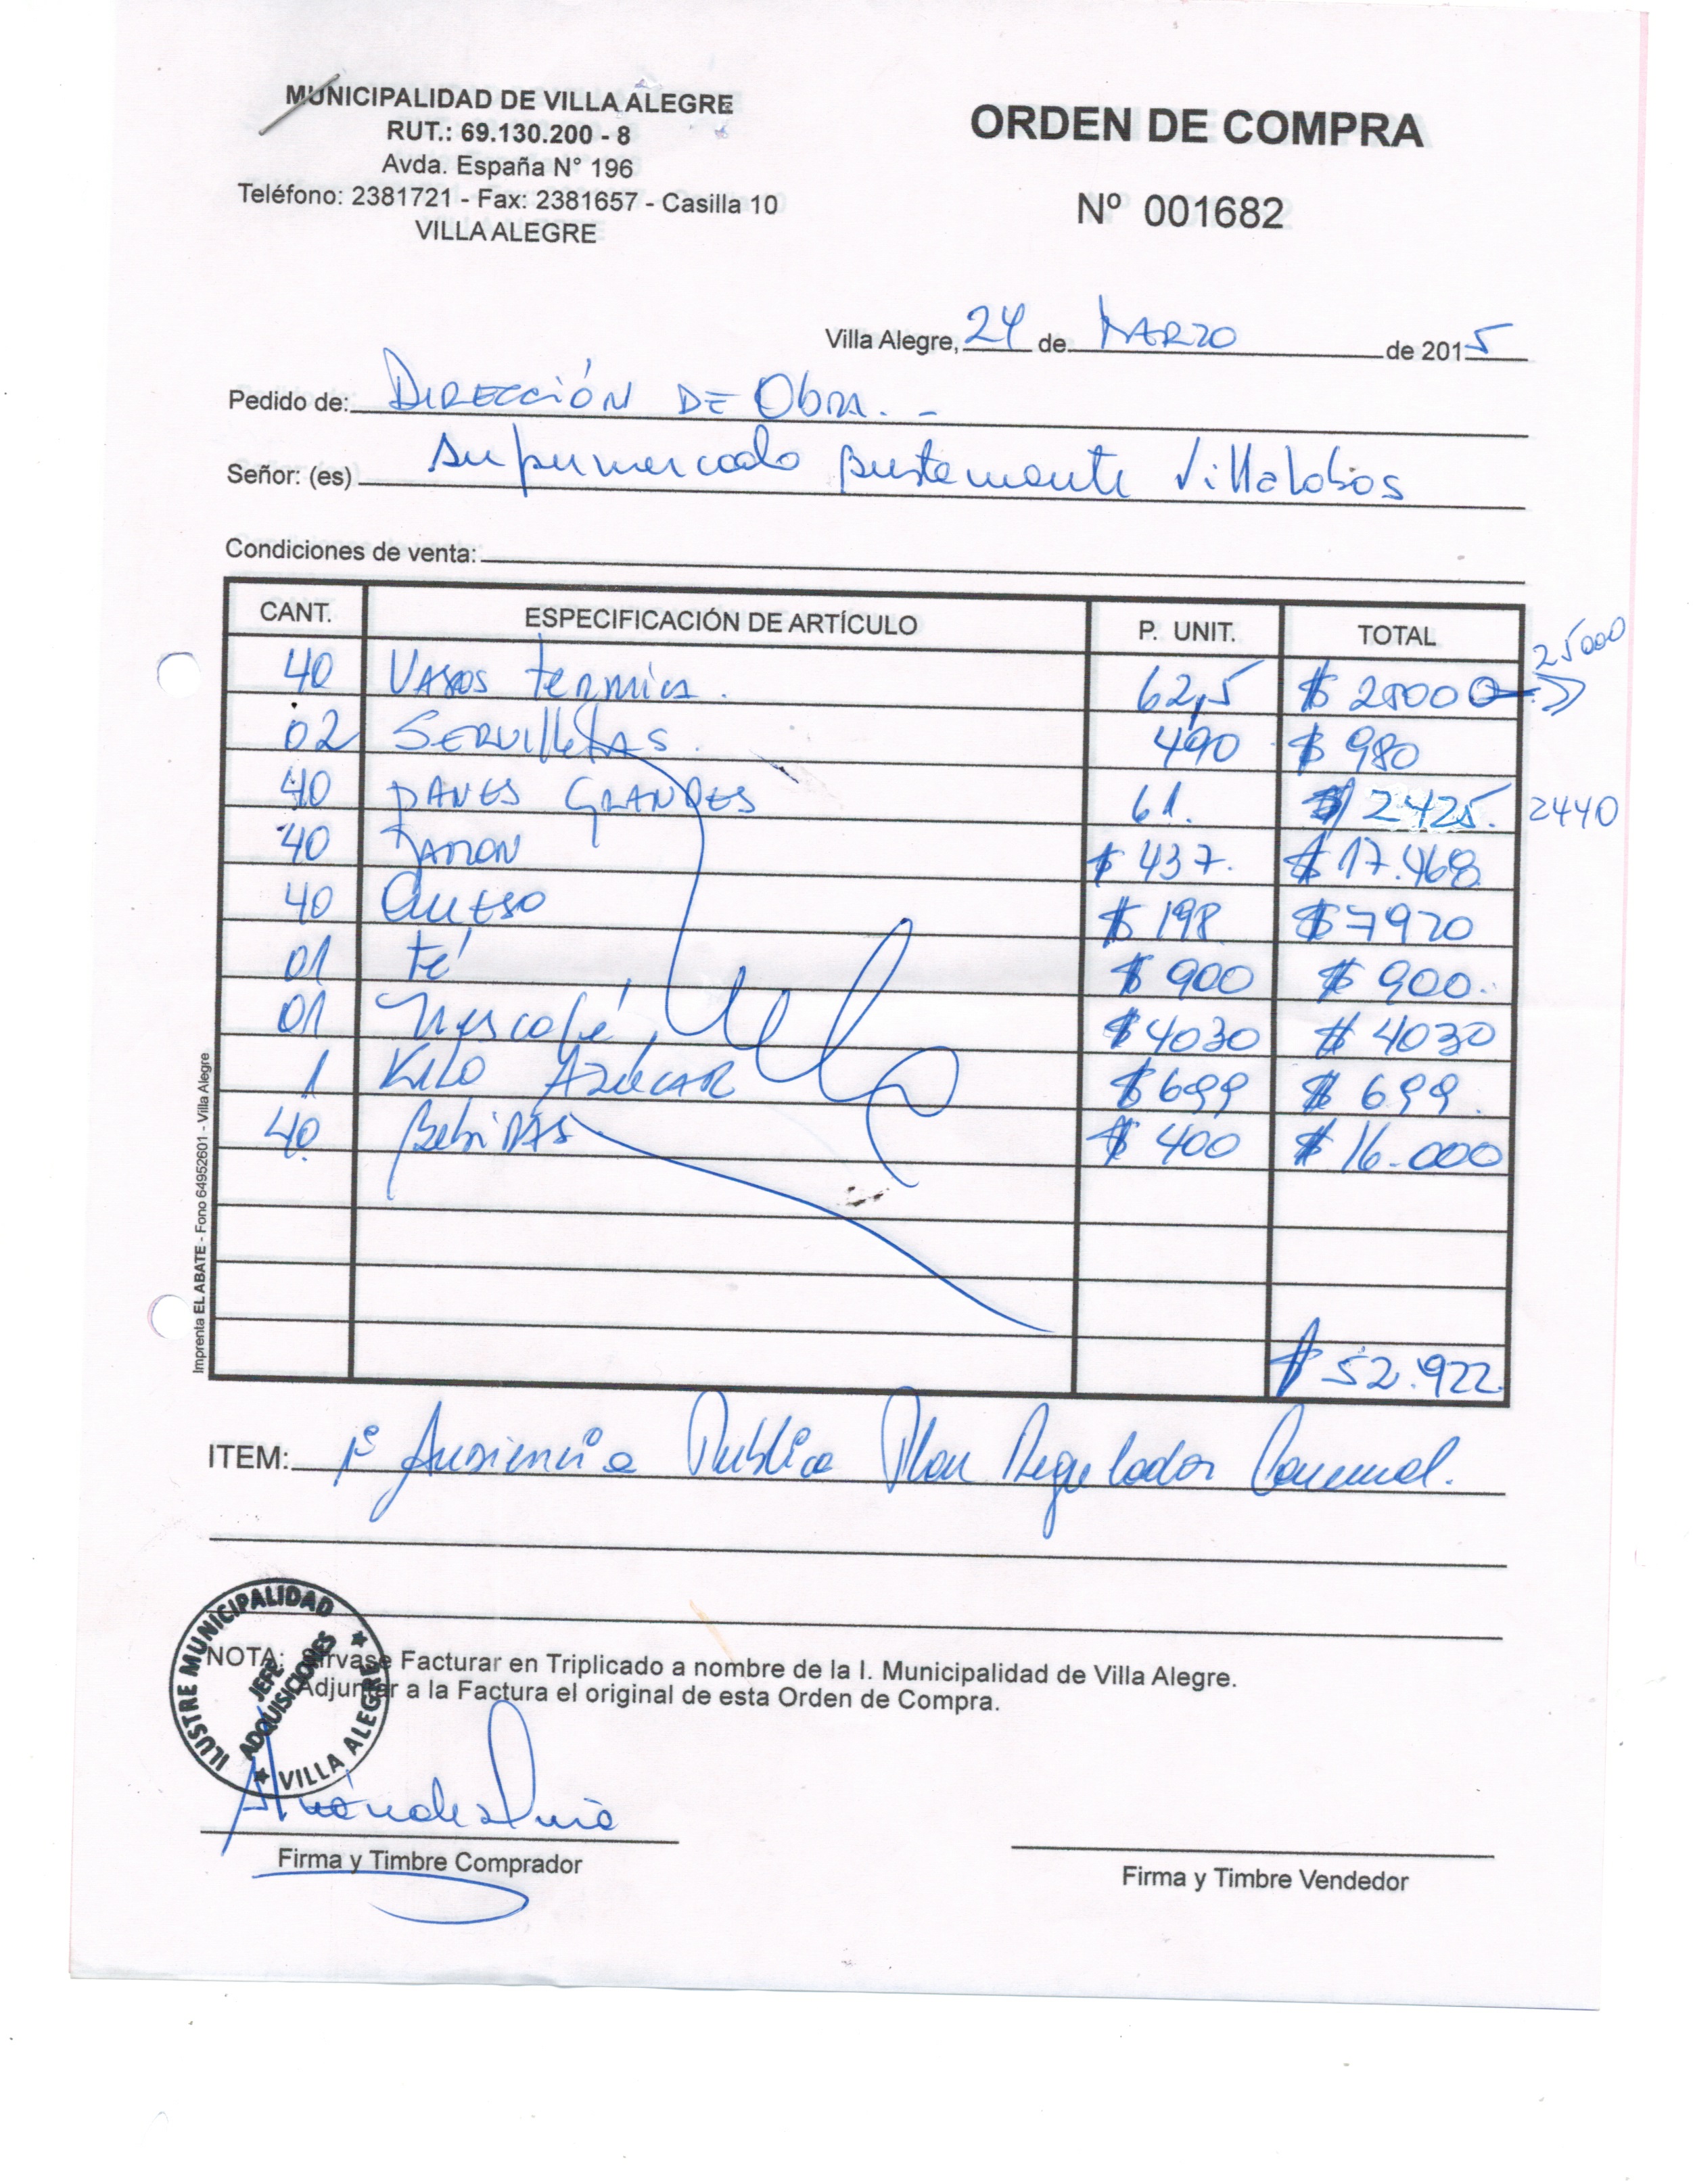 MUNICIPALIDAD DE VILLA ALEGRE
RUT.: 69.130.200 - 8
Avda. España N° 196
Teléfono: 2381721 - Fax: 2381657 - Casilla 10
VILLA ALEGRE
ORDEN DE COMPRA
Nº 001682
Villa Alegre, 24 de MARZO de 2015
Pedido de: DIRECCIÓN DE Obra. -
Señor: (es) Supermercado Bustamante Villalobos
Condiciones de venta:
CANT. ESPECIFICACIÓN DE ARTÍCULO P. UNIT. TOTAL
25000
40 Vasos termica. 62,5 $ 25000
02 SERVIlletAS. 490 $ 980
40 PANES GRANDES 61. $ 2425. 2440
40 JAMON $ 437. $ 17.468
40 QUESO $ 198 $ 7920
01 té $ 900 $ 900.
01 Nescafé $ 4030 $ 4030
1 KILO AZÚCAR $ 699 $ 699.
40 BebiDAS $ 400 $ 16.000
$ 52.922
ITEM: 1º Audiencia Publica Plan Regulador Comunal.
ILUSTRE MUNICIPALIDAD
JEFE
ADQUISICIONES
★ VILLA ALEGRE ★
NOTA: Sírvase Facturar en Triplicado a nombre de la I. Municipalidad de Villa Alegre.
Adjuntar a la Factura el original de esta Orden de Compra.
Firma y Timbre Comprador
Firma y Timbre Vendedor
Imprenta EL ABATE - Fono 64952601 - Villa Alegre